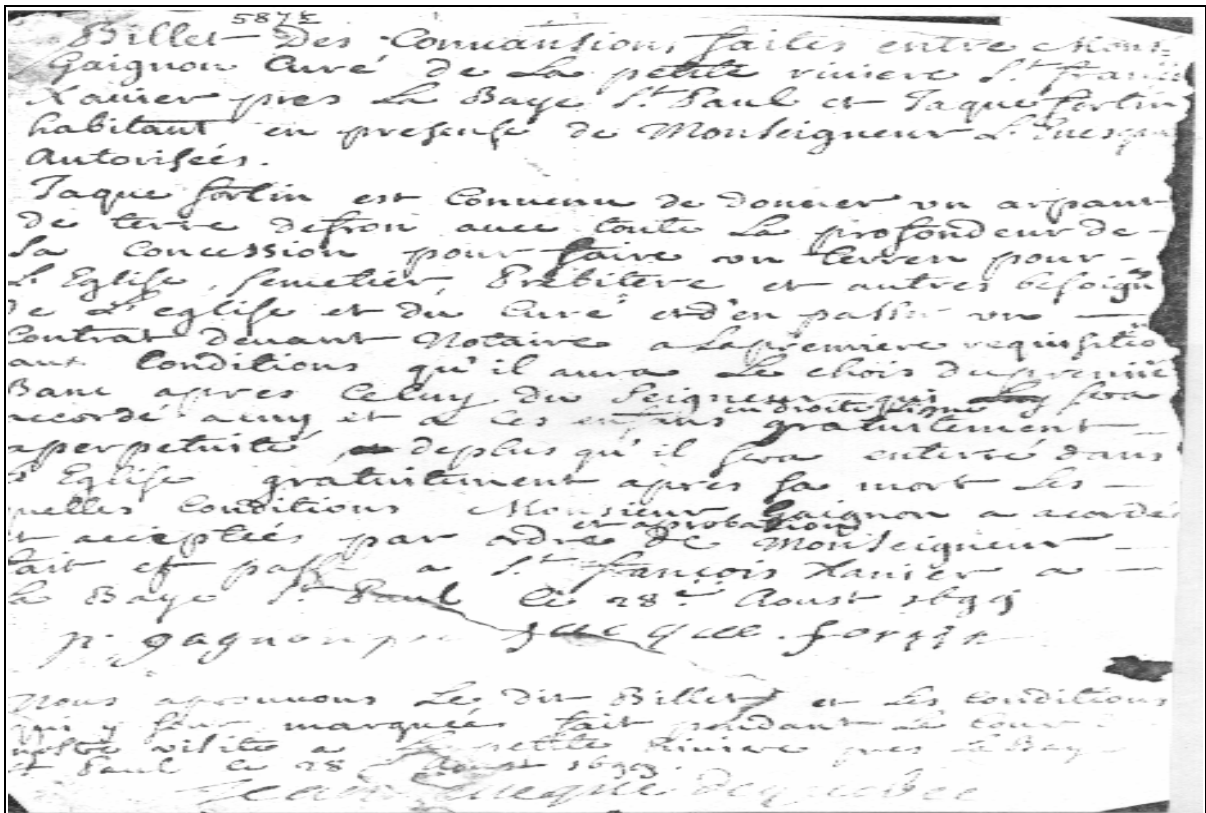 587 E
Billet Des Conuansions faites entre Mons.
Gaignon Curé de La petite riviere St. françois
Xauier pres La Baye St. Paul et Jaque fortin
habitant en presense de Monseigneur L'Euesque
Autorisées.
Jaque fortin est Conuenu de donner un arpant
de terre defron auec toute La profondeur de
Sa Concession pour faire un terren pour
L'Eglise, Semetier, Prebitere et autres besoign
de L'eglise et du Curé et d'en passer un
Contrat deuant Notaire a La premiere requisitio
aux Conditions qu'il aura Le chois du premie
Banc apres Celuy du Seigneur qui Luy sera
en droite Ligne
accordé a luy et a ses enfans gratuitement
a perpetuité deplus qu'il sera enterré dans
L'Eglise gratuitement apres sa mort Les
quelles Conditions Monsieur Gaignon a acordé
et aprobation
et acceptées par ordre de Monseigneur
fait et passé a St. françois Xauier a
La Baye St. Paul Le 28e. Aoust 1699
p. gagnon p jacque fortin
Nous aprouuons Le dit Billet et Les conditions
qui y sont marquées fait pendant Le Cour
nostre visite a La petite Riviere pres La Bay
St Paul Le 28 Aoust 1699.
Jean Euesque de quebec